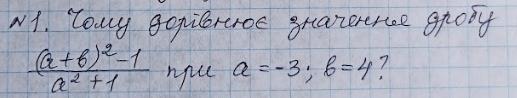 №1. Чому дорівнює значення дробу
((a+b)²-1)/(a²+1) при a = -3; b = 4?